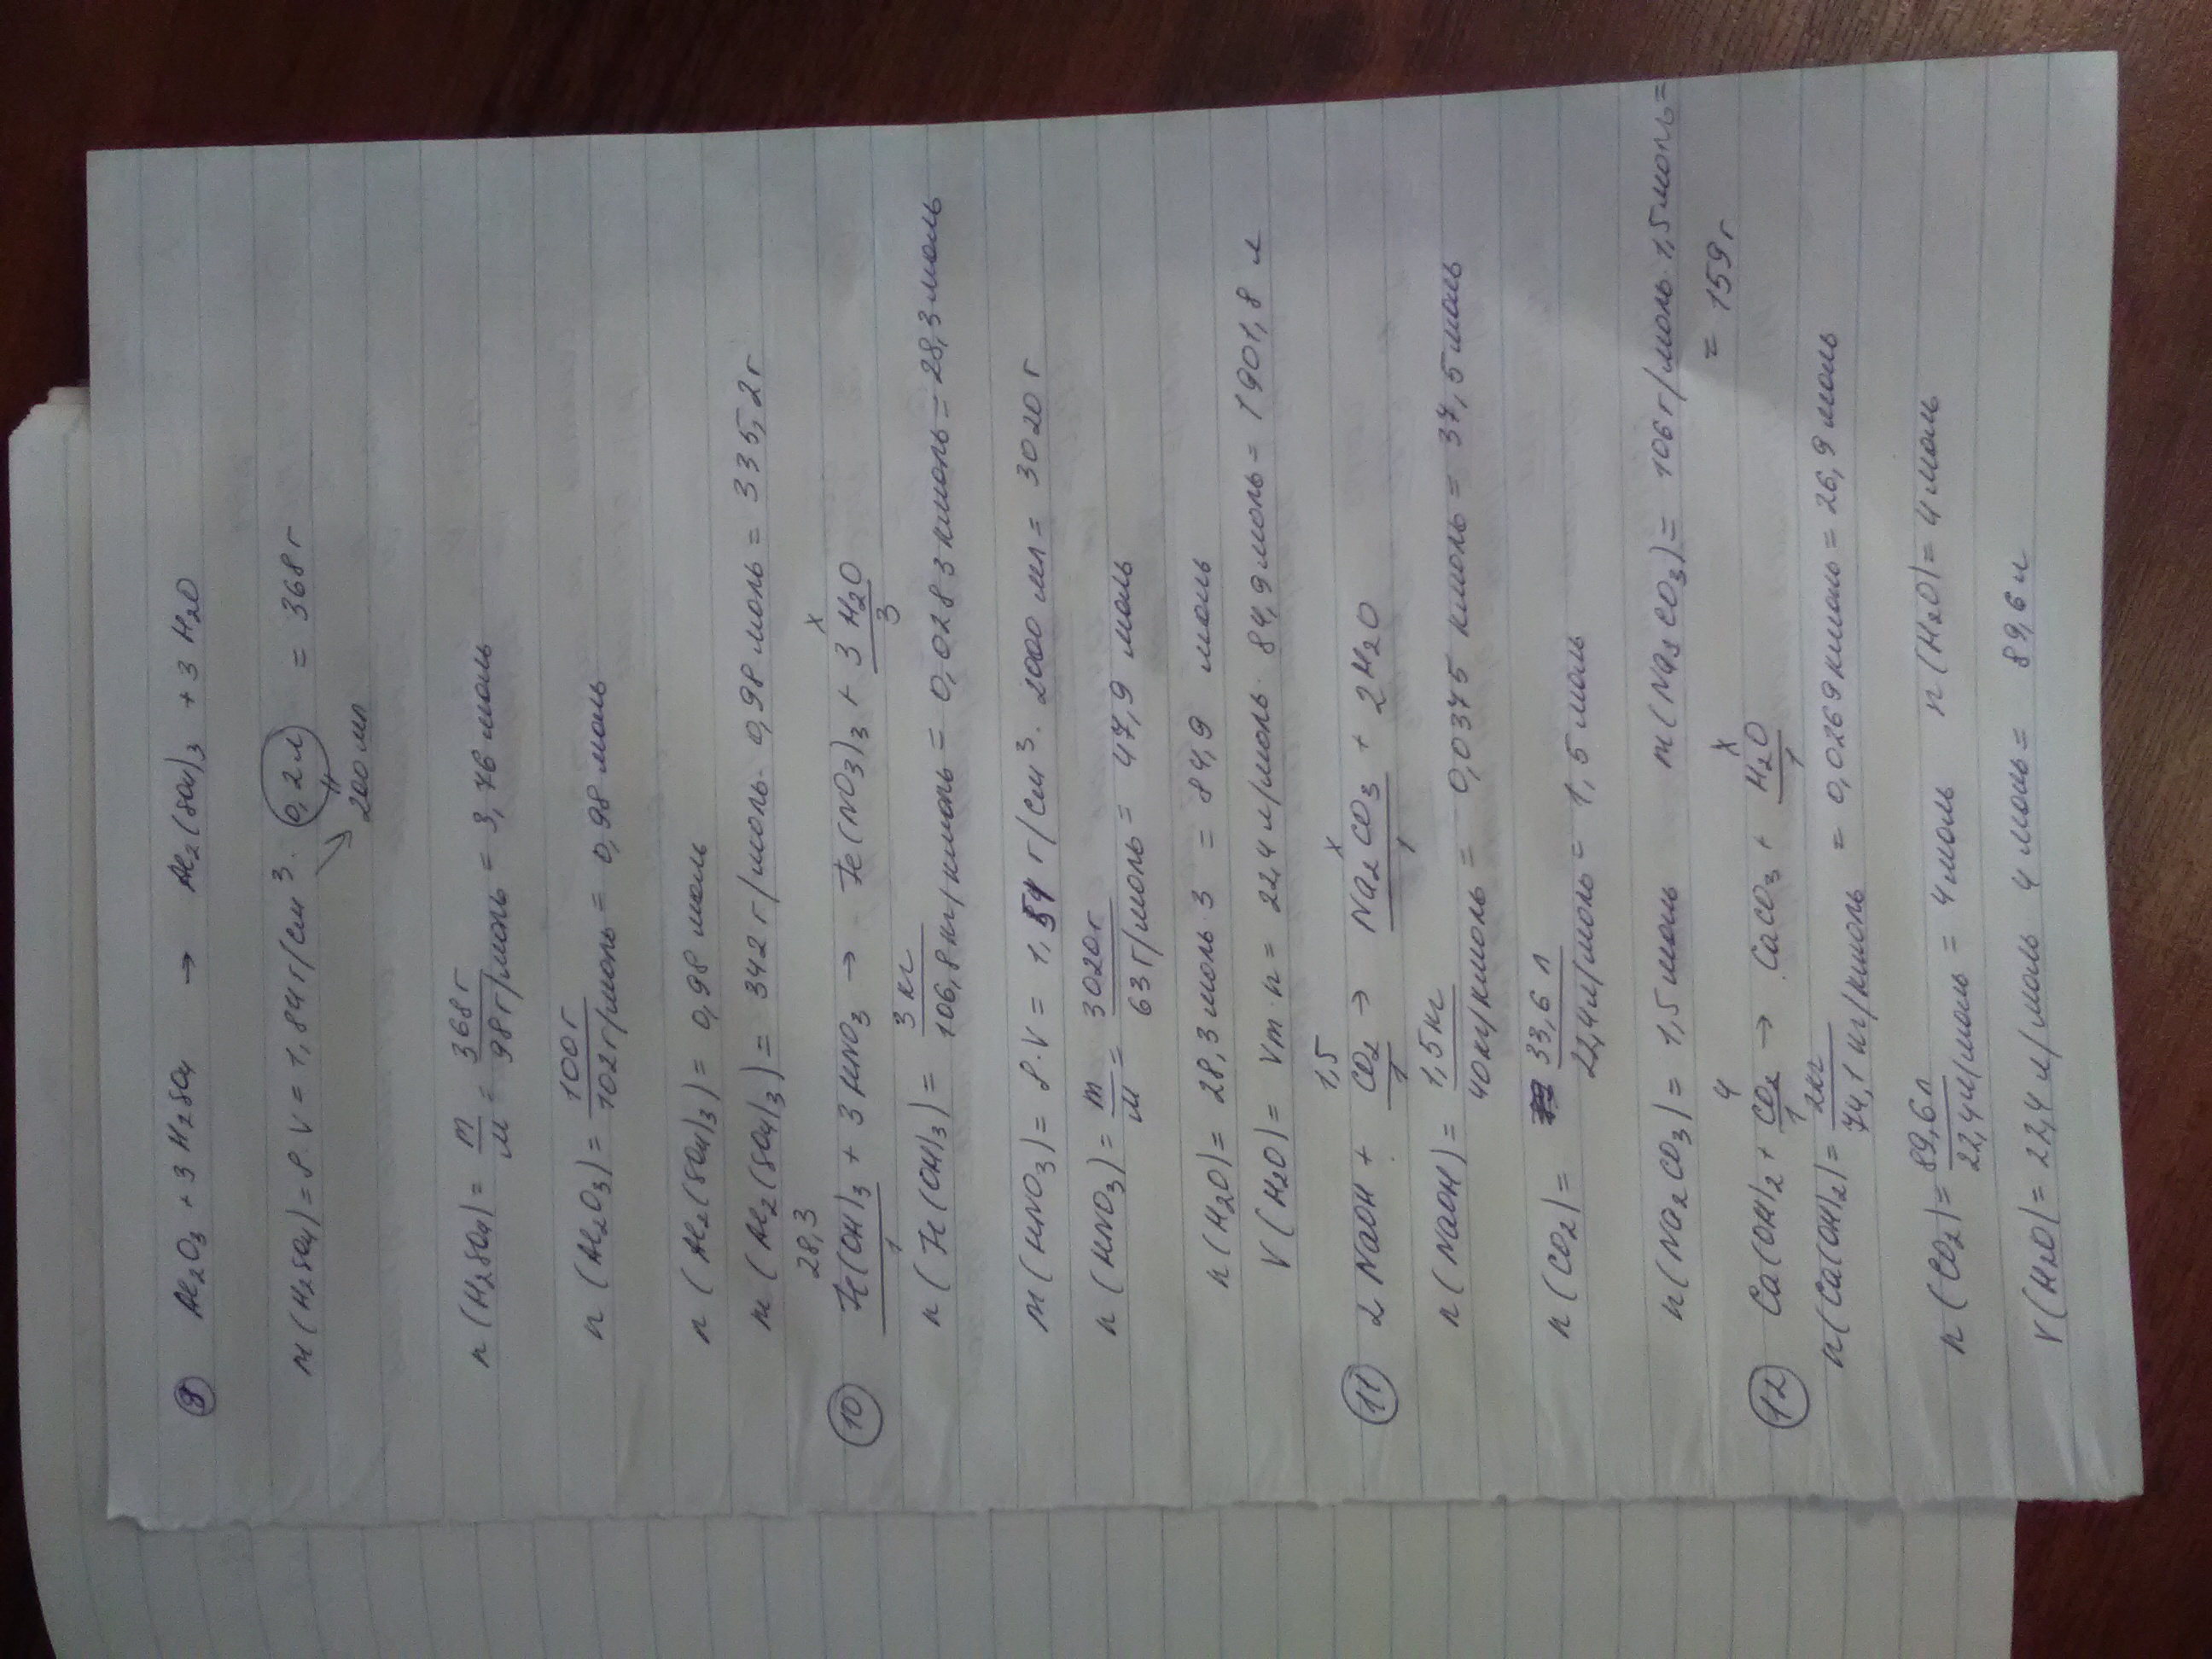 9 Al2O3 + 3 H2SO4 → Al2(SO4)3 + 3 H2O
m(H2SO4) = ρ·V = 1,84 г/см³ · 0,2 л = 368 г
200 мл
n(H2SO4) = m/M = 368 г / 98 г/моль = 3,76 моль
n(Al2O3) = 100 г / 102 г/моль = 0,98 моль
n(Al2(SO4)3) = 0,98 моль
m(Al2(SO4)3) = 342 г/моль · 0,98 моль = 335,2 г
28,3 x
10 Fe(OH)3 + 3 HNO3 → Fe(NO3)3 + 3 H2O
1 3
n(Fe(OH)3) = 3 кг / 106,8 кг/кмоль = 0,0283 кмоль = 28,3 моль
m(HNO3) = ρ·V = 1,51 г/см³ · 2000 мл = 3020 г
n(HNO3) = m/M = 3020 г / 63 г/моль = 47,9 моль
n(H2O) = 28,3 моль · 3 = 84,9 моль
V(H2O) = Vm·n = 22,4 л/моль · 84,9 моль = 1901,8 л
1,5 x
11 2 NaOH + CO2 → Na2CO3 + 2H2O
1 1
n(NaOH) = 1,5 кг / 40 кг/кмоль = 0,0375 кмоль = 37,5 моль
n(CO2) = 33,6 л / 22,4 л/моль = 1,5 моль
n(Na2CO3) = 1,5 моль m(Na2CO3) = 106 г/моль · 1,5 моль =
= 159 г
4 x
12 Ca(OH)2 + CO2 → CaCO3 + H2O
1 1
n(Ca(OH)2) = 2 кг / 74,1 кг/кмоль = 0,0269 кмоль = 26,9 моль
n(CO2) = 89,6 л / 22,4 л/моль = 4 моль n(H2O) = 4 моль
V(H2O) = 22,4 л/моль 4 моль = 89,6 л